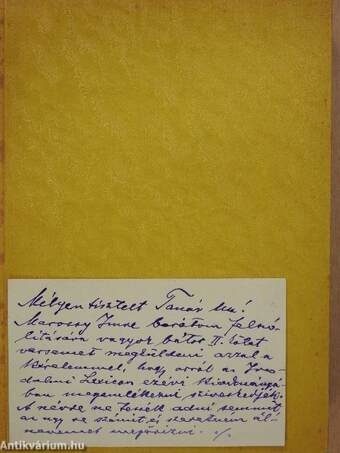 Mélyen tisztelt Tanár Úr!
Marossy Imre barátom felszó-
lítására vagyok bátor II. kötet
versemet megküldeni azzal a
kérelemmel, hogy arról az Iro-
dalmi Lexicon ezévi kiadványá-
ban megemlékezni szíveskedjék.
A névre ne tessék adni semmit
az úgy se számít és szeretném ál-
nevemet megőrizni. ./.
Antikvárium.hu